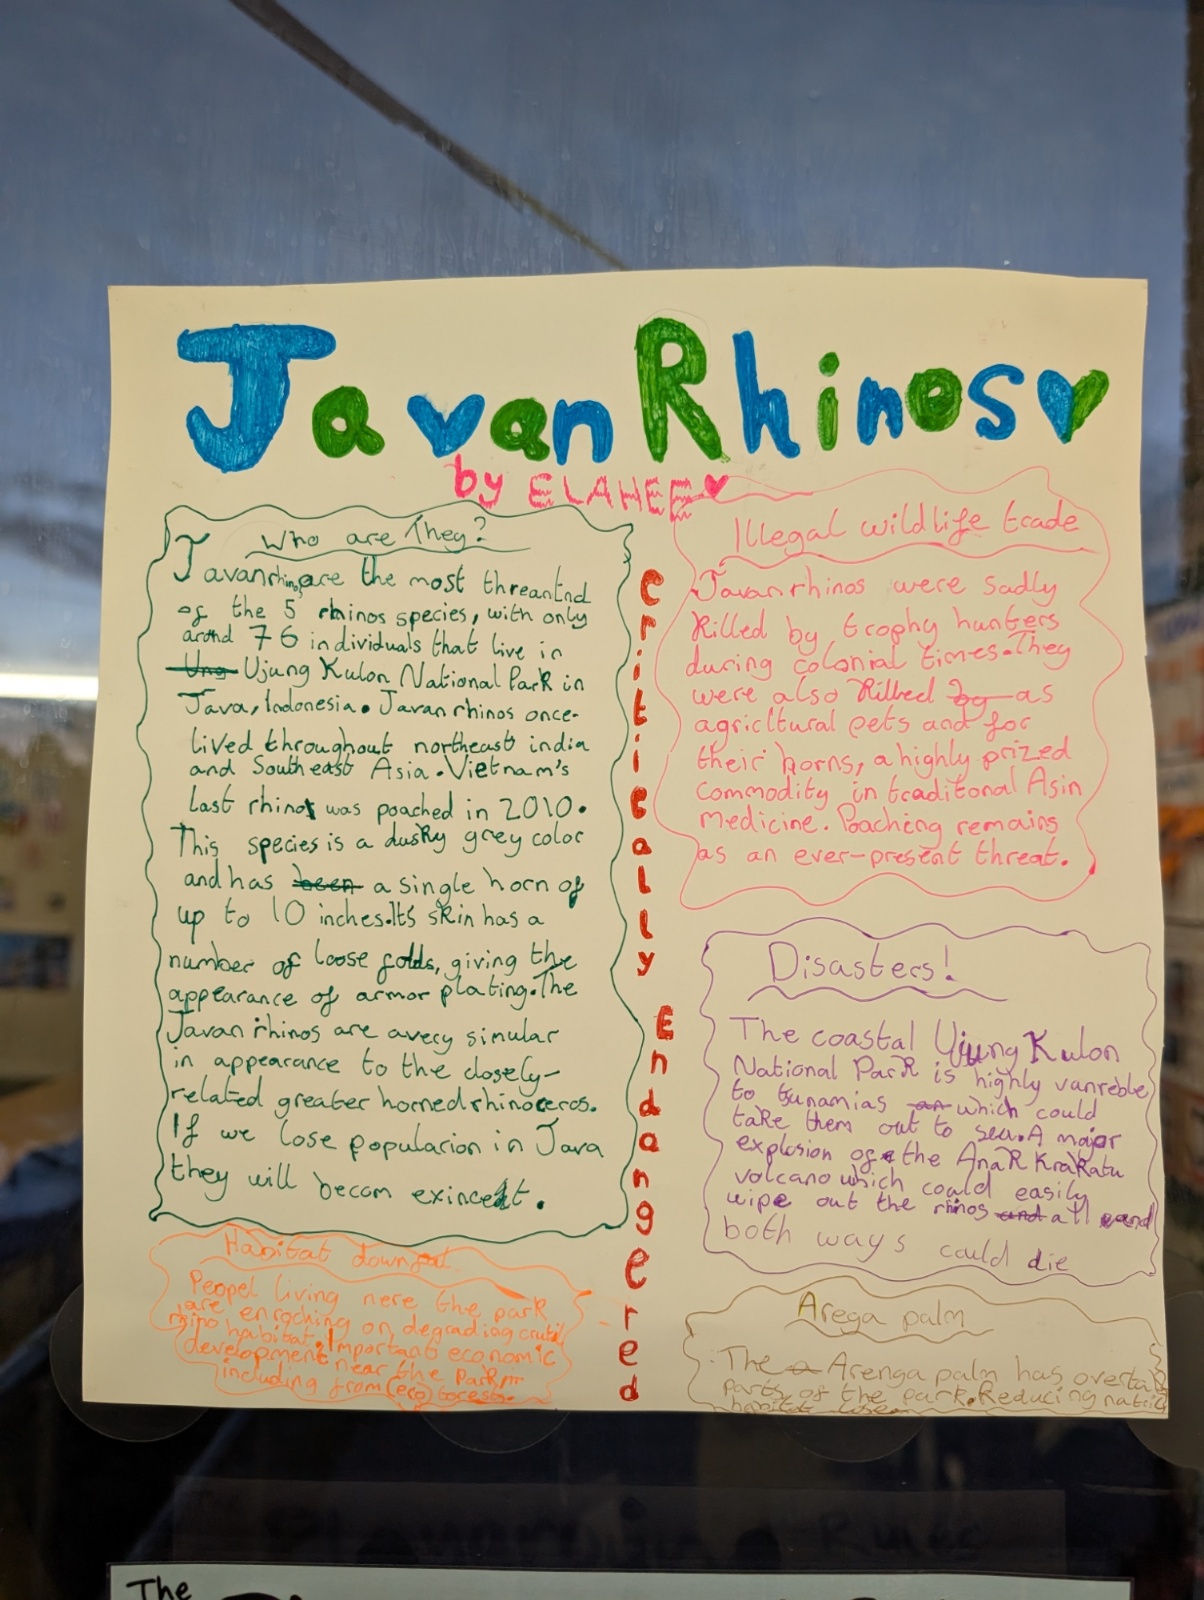 Javan Rhinos
by ELAHEE
Who are They?
Javanrhinos are the most threantnd
of the 5 rhinos species, with only
arond 76 individuals that live in
Ung Ujung Kulon National Park in
Java, Indonesia. Javan rhinos once-
lived throughout northeast india
and South east Asia. Vietnam's
last rhino was poached in 2010.
This species is a dusky grey color
and has been a single horn of
up to 10 inches. It's skin has a
number of loose folds, giving the
appearance of armor plating. The
Javan rhinos are avery simular
in appearance to the closely-
related greater horned rhinoceros.
If we lose popularion in Java
they will becom exincet.
Habitat downfat
Peopel living nere the park
are enroching on, degrading crutil
rhino habitat. Important economic
development near the Park
including from (eco)
Critically Endangered
Illegal wildlife trade
Javan rhinos were sadly
Killed by trophy hunters
during colonial times. They
were also Killed by as
agricltural pets and for
their horns, a highly prized
commodity in traditonal Asin
medicine. Poaching remains
as an ever-present threat.
Disasters!
The coastal Ujung Kulon
National Park is highly vanreble
to tsunamias an which could
take them out to sea. A major
explosion of the Anak Krakatu
volcano which could easily
wipe out the rhinos and all and
both ways could die
Arega palm
The a Arenga palm has overta
parts of the park. Reducing
habitat
The